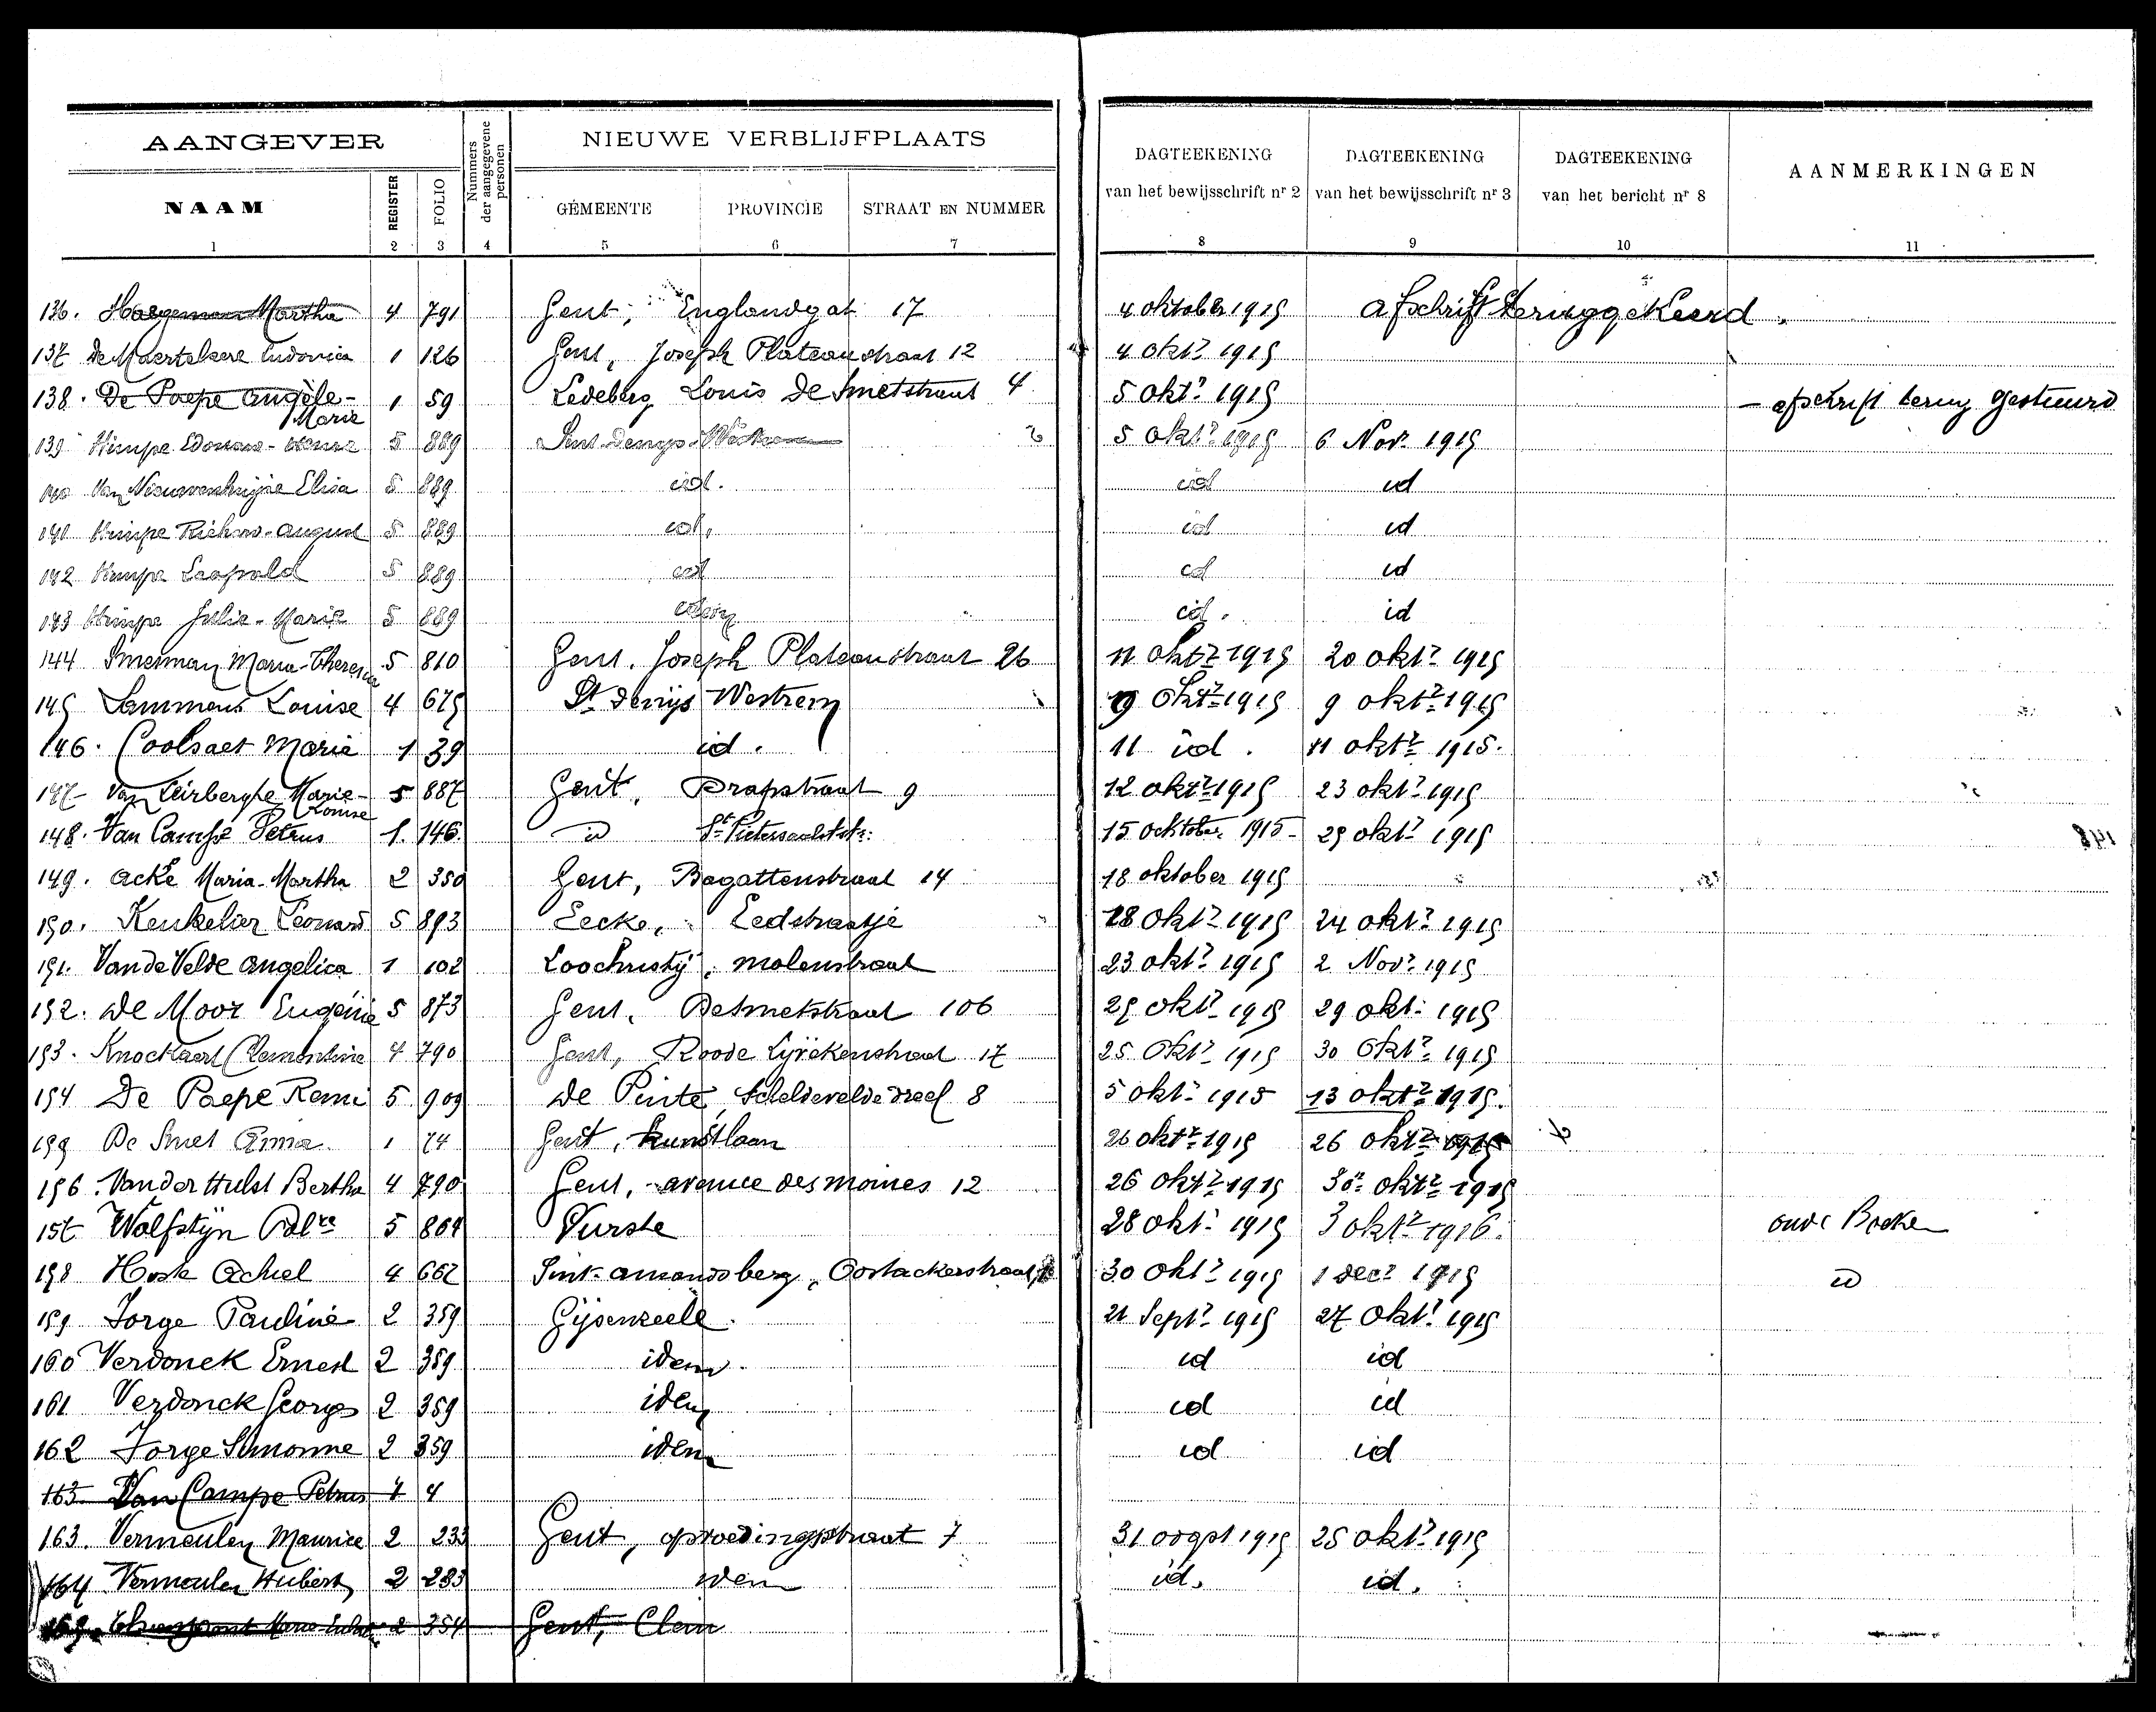 AANGEVER
NAAM
REGISTER
FOLIO
Nummers der aangegevene personen
NIEUWE VERBLIJFPLAATS
GEMEENTE PROVINCIE STRAAT EN NUMMER
DAGTEEKENING van het bewijsschrift nr 2
DAGTEEKENING van het bewijsschrift nr 3
DAGTEEKENING van het bericht nr 8
AANMERKINGEN
1 2 3 4 5 6 7 8 9 10 11
136. Haegeman Martha 4 791 Gent, Englandgat 17 4 oktober 1915 afschrift teruggekeerd.
137 de Maertelaere Ludovica 1 126 Gent, Joseph Plateaustraat 12 4 okt? 1915
138. De Paepe Angèle-Marie 1 59 Ledeberg Louis De Smetstraat 4 5 okt? 1915 – afschrift terug gestuurd
139 Himpe 5 889 Sint-Denys-Westrem 5 okt? 1915 6 Nov. 1915
140 Elisa 5 889 id. id id
141 Himpe Richard-August 5 889 id. id id
142 Himpe Leopold 5 889 id id id
143 Himpe Julie-Marie 5 889 idem id. id
144 Smerman Maria-Theresia 5 810 Gent. Joseph Plateaustraat 26 11 okt? 1915 20 okt? 1915
145 Lammens Louise 4 675 St Denijs Westrem 9 okt? 1915 9 okt? 1915
146. Coolsaet Marie 1 39 id. 11 id. 11 okt? 1915.
147- Van Leirberghe Marie-Louise 5 887 Gent, Drapstraat 9 12 okt? 1915 23 okt? 1915
148. Van Campe Petrus 1. 146. id St Pietersaalststr. 15 ocktober 1915- 25 okt? 1915
149. Acke Maria-Martha 2 350 Gent, Bagattenstraat 14 18 oktober 1915
150. Keukelier Leonard 5 893 Eecke, Eedstraatje 18 okt? 1915 24 okt? 1915
151. Van de Velde Angelica 1 102 Loochristij, molenstraat 23 okt? 1915 2 Nov? 1915
152. De Moor Eugénie 5 873 Gent, Desmetstraat 106 25 okt? 1915 29 okt. 1915
153. Knockaert Clementine 4 790 Gent, Roode Lijvekenstraat 17 25 Okt? 1915 30 Okt? 1915
154 De Paepe Remi 5 909 De Pinte, Scheldevelde dreef 8 5 okt. 1915 13 okt? 1915.
155 De Smet 1 74 Gent, kunstlaan 26 okt? 1915 26 okt? 1915
156. Van der Hulst Bertha 4 790 Gent, avenue des moines 12 26 okt? 1915 30 okt? 1915
157 Wolfstijn 5 864 Vurste 28 okt. 1915 3 okt? 1916. oude Boeken
158 Hoste Achiel 4 662 Sint-Amandsberg, Oostackerstraat 30 okt? 1915 1 dec? 1915 id
159 Jorge Pauline 2 359 Gijsenzeele. 21 Sept? 1915 27 okt? 1915
160 Verdonck Ernest 2 359 idem. id id
161 Verdonck Georges 2 359 idem id id
162 Jorge Simonne 2 359 idem id id
163. Van Campe Petrus 1 4
163. Vermeulen Maurice 2 233 Gent, opvoedingstraat 7 31 oogst 1915 25 okt? 1915
164 Vermeulen Hubert 2 233 idem id. id.
165. 2 354 Gent,
148